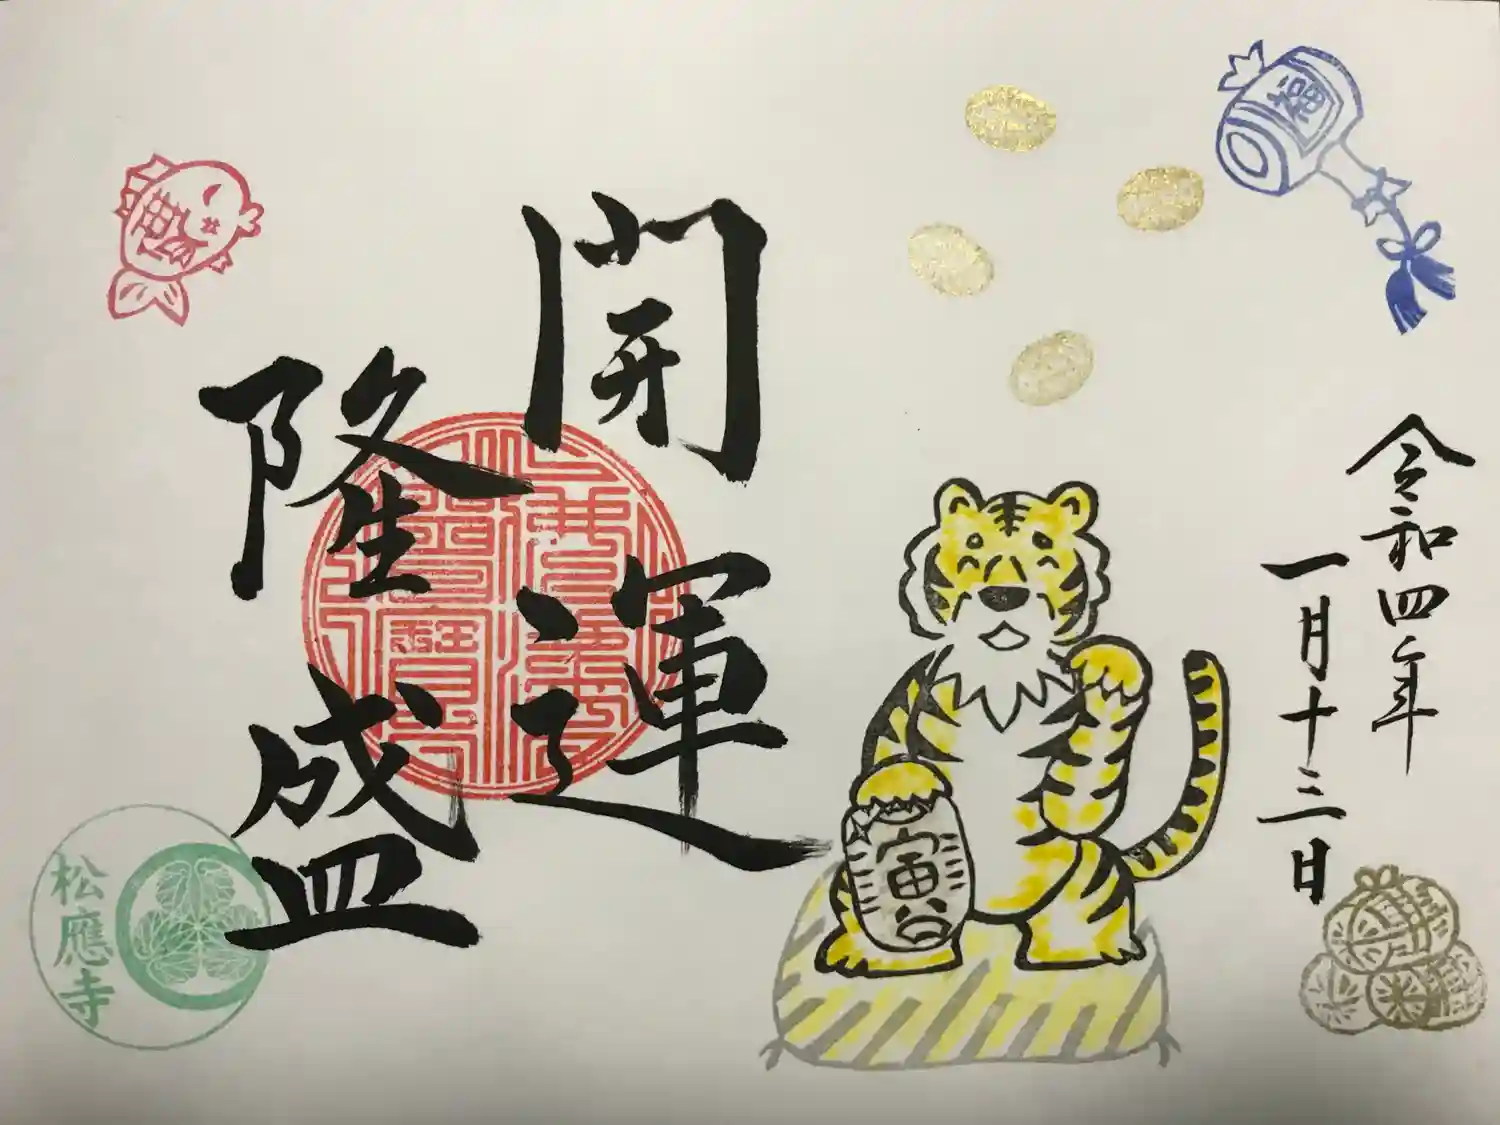 令和四年
一月十三日
開運
隆盛
寅
福
米
松應寺